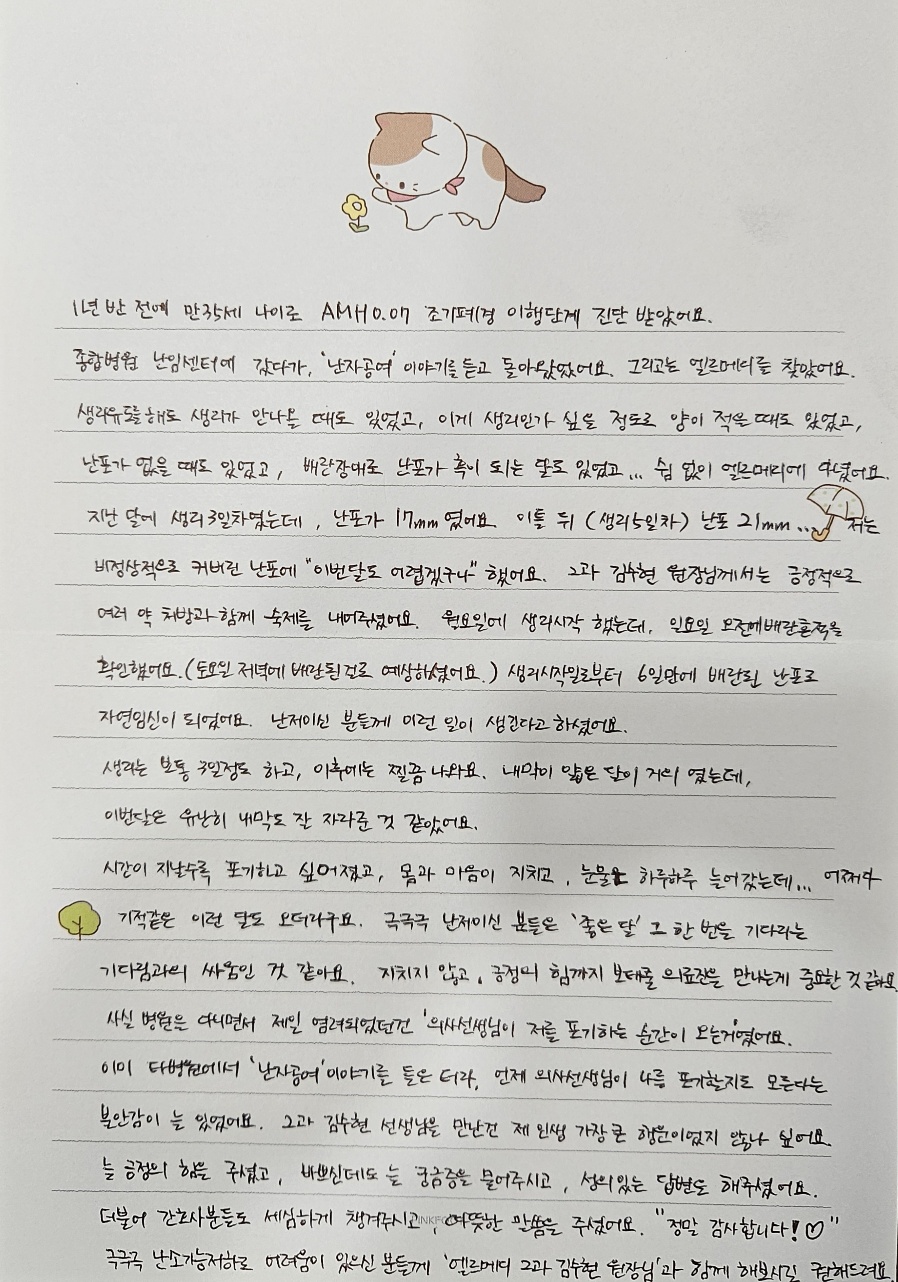 1년 반 전에 만35세 나이로 AMH 0.07 조기폐경 이행단계 진단 받았어요.
종합병원 난임센터에 갔다가, '난자공여' 이야기를 듣고 돌아왔었어요. 그리고는 엘르메디를 찾았어요.
생리유도를 해도 생리가 안나올 때도 있었고, 이게 생리인가 싶을 정도로 양이 적을 때도 있었고,
난포가 없을 때도 있었고, 배란장애로 난포가 혹이 되는 달도 있었고... 쉼 없이 엘르메디에 다녔어요.
지난 달에 생리3일차였는데, 난포가 17mm 였어요. 이틀 뒤 (생리5일차) 난포 21mm... 저는
비정상적으로 커버린 난포에 "이번달도 어렵겠구나" 했어요. 2과 김수현 원장님께서는 긍정적으로
여러 약 처방과 함께 숙제를 내어주셨어요. 월요일에 생리시작 했는데, 일요일 오전에 배란흔적을
확인했어요. (토요일 저녁에 배란된걸로 예상하셨어요.) 생리시작일로부터 6일만에 배란된 난포로
자연임신이 되었어요. 난저이신 분들께 이런 일이 생긴다고 하셨어요.
생리는 보통 3일정도 하고, 이후에는 찔끔 나와요. 내막이 얇은 달이 거의 였는데,
이번달은 유난히 내막도 잘 자라준 것 같았어요.
시간이 지날수록 포기하고 싶어졌고, 몸과 마음이 지치고, 눈물도 하루하루 늘어갔는데... 어쩌다
기적같은 이런 달도 오더라구요. 극극극 난저이신 분들은 '좋은 달' 그 한 번을 기다라는
기다림과의 싸움인 것 같아요. 지치지 않고, 긍정의 힘까지 보태줄 의료진을 만나는게 중요한 것 같아요
사실 병원을 다니면서 제일 염려되었던건 '의사선생님이 저를 포기하는 순간이 오는거'였어요.
이미 타병원에서 '난자공여' 이야기를 들은 터라, 언제 의사선생님이 나를 포기할지도 모른다는
불안감이 늘 있었어요. 2과 김수현 선생님을 만난건 제 인생 가장 큰 행운이었지 않나 싶어요.
늘 긍정의 힘을 주셨고, 바쁘신데도 늘 궁금증을 물어주시고, 성의있는 답변도 해주셨어요.
더불어 간호사분들도 세심하게 챙겨주시고, 따뜻한 말씀을 주셨어요. "정말 감사합니다!♡"
극극극 난소기능저하로 어려움이 있으신 분들께 '엘르메디 2과 김수현 원장님'과 함께 해보시길 권해드려요.